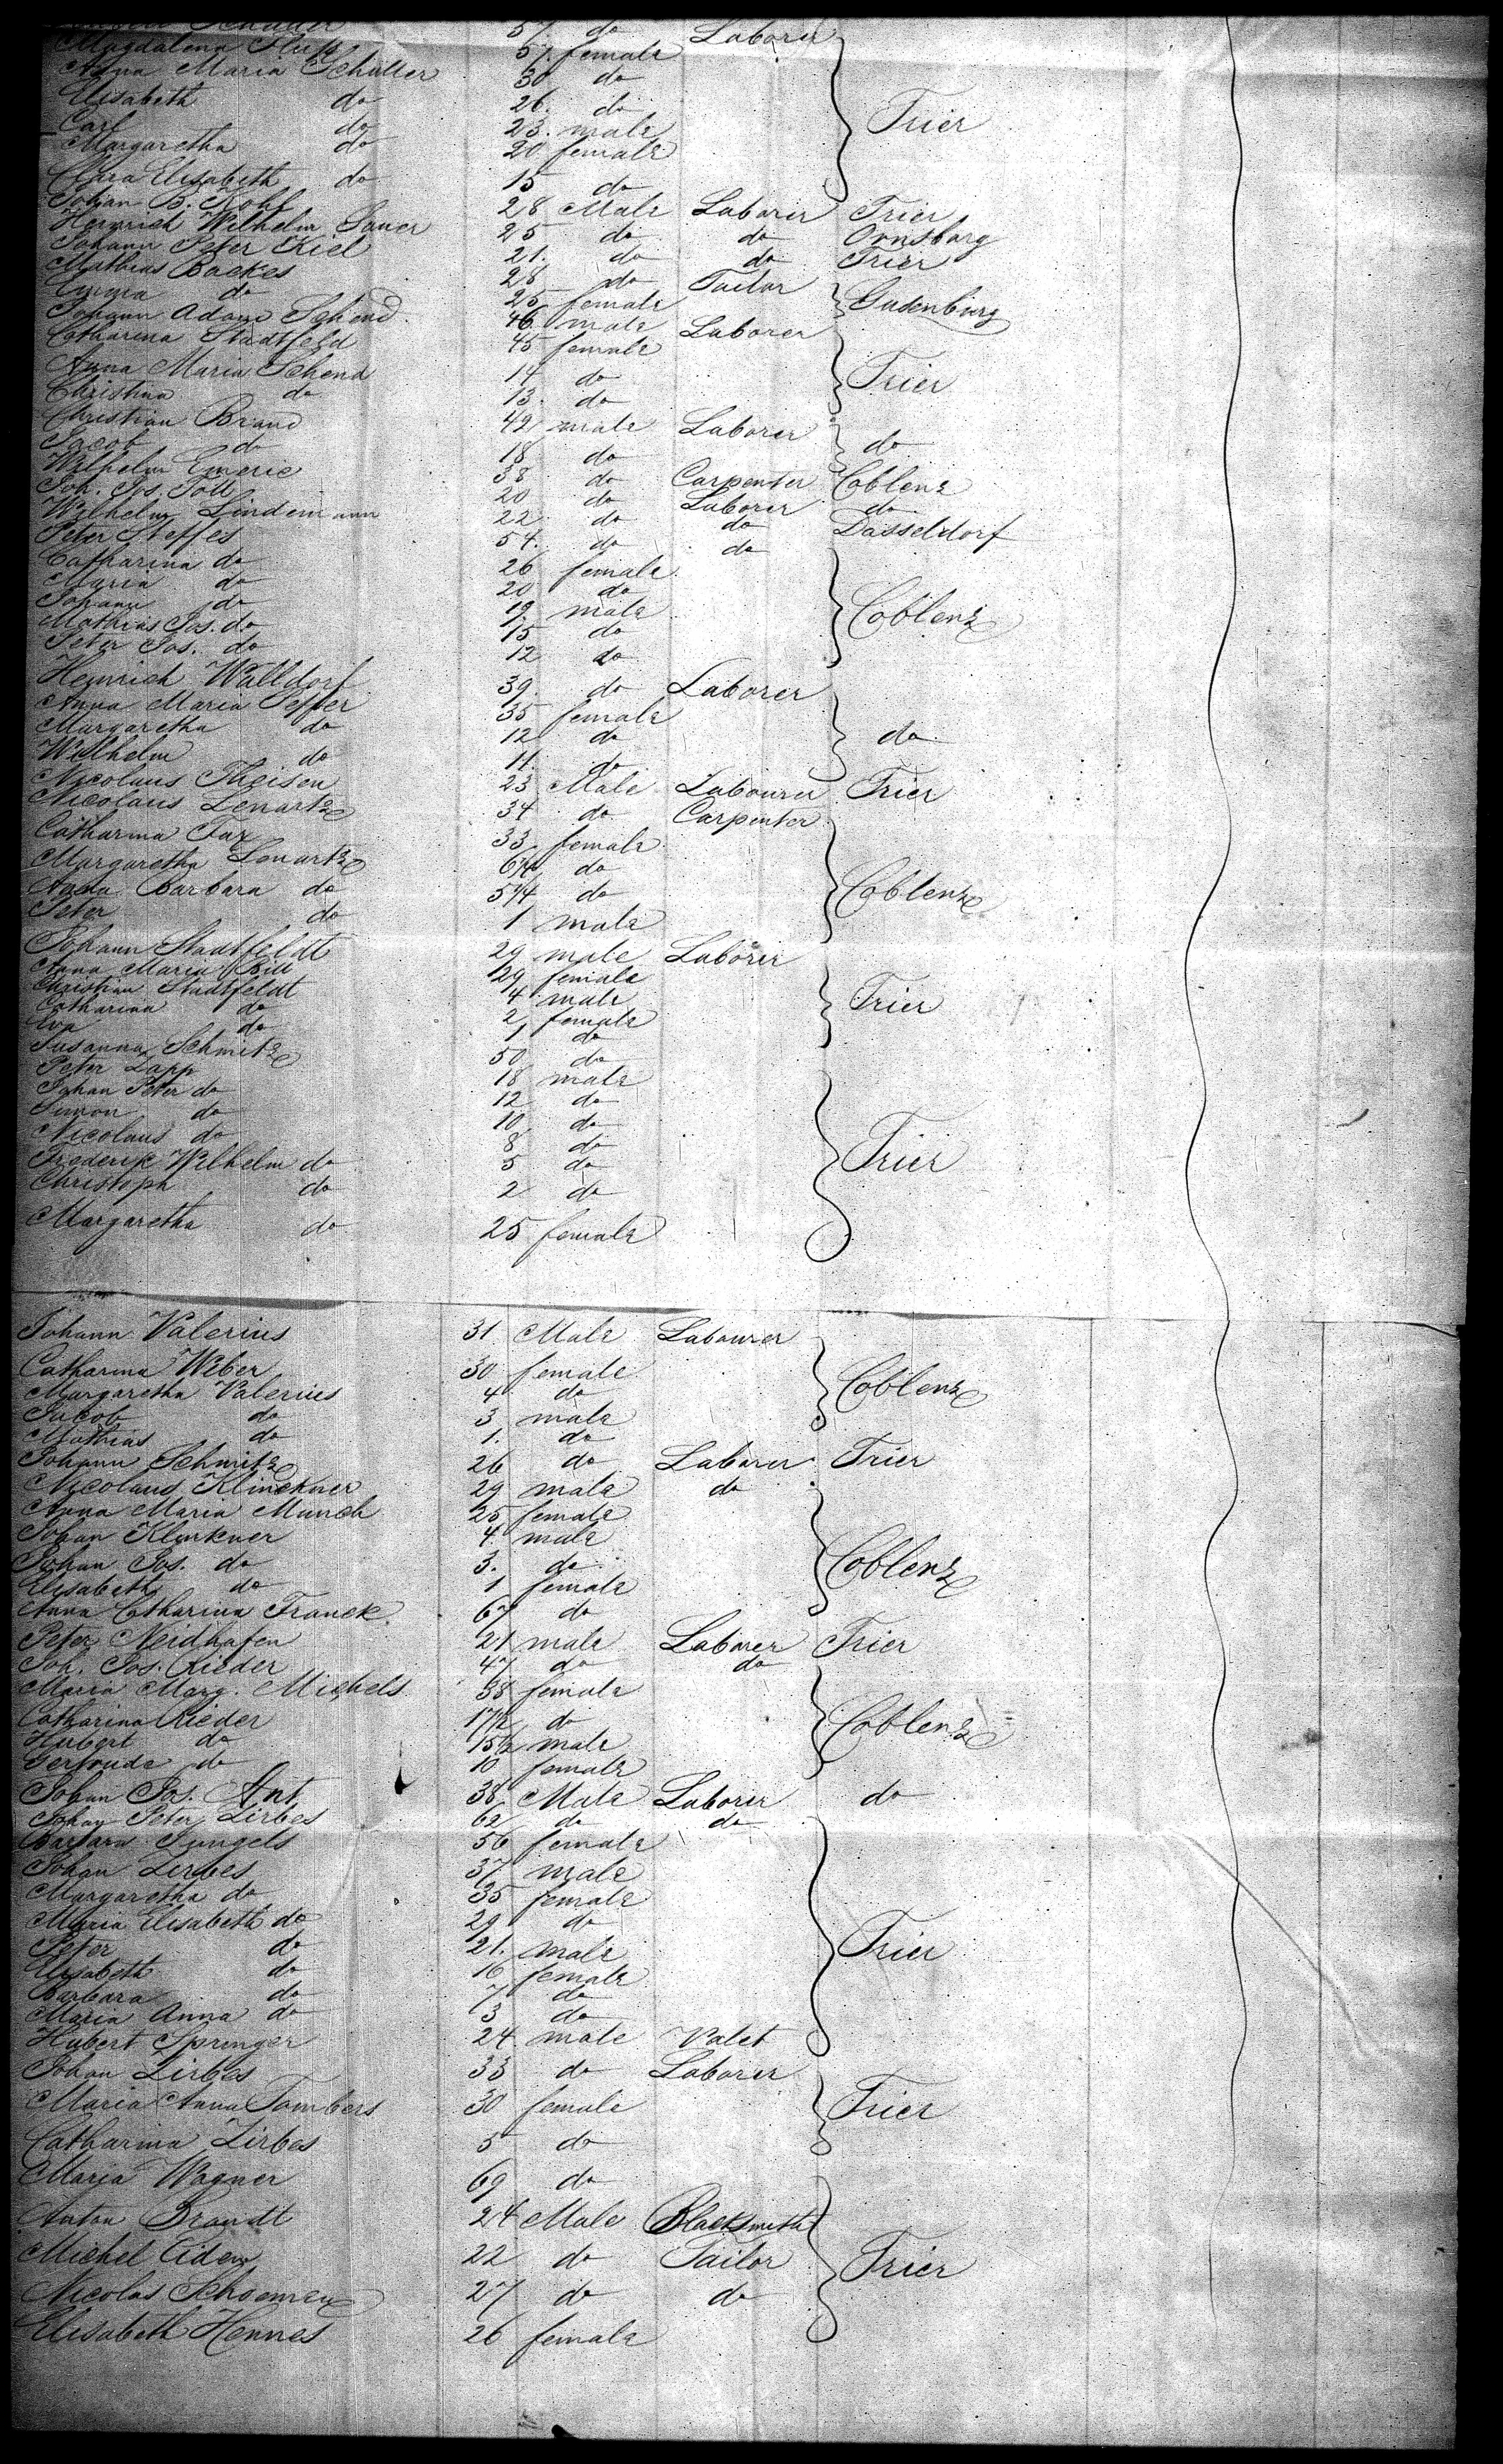 57. do Laborer
Magdalena 57. female
Anna Maria Schuller 30 do
Elisabeth do 26. do Trier
Carl do 23. male
Margaretha do 20 female
Clara Elisabeth do 15 do
Johan B. Kohl 28 Male Laborer Trier
Heinrich Wilhelm Sauer 25 do do Ornsburg
Johann Peter Kiel 21. do do Trier
Mathias Backes 28 do Tailor
Emma do 25 female Gudenburg
Johann Adam Schend 46 male Laborer
Catharina Stadtfeld 45 female
Anna Maria Schend 14 do Trier
Christina do 13. do
Christian Brand 42 male Laborer
Jacob do 18 do do
Wilhelm Emeric 38 do Carpenter Coblenz
Joh. Jos. Toll 20 do Laborer do
Wilhelm Lindemann 22 do do Dusseldorf
Peter Steffes 54. do do
Catharina do 26 female
Maria do 20 do
Johann do 19 male Coblenz
Mathias Jos. do 15 do
Peter Jos. do 12 do
Heinrich Walldorf 39. do Laborer
Anna Maria Peffer 35 female
Margaretha do 12 do do
Wilhelm do 11. do
Nicolaus Theisen 23 Male Labourer Trier
Nicolaus Lenartz 34 do Carpenter
Catharina Fax 33 female
Margaretha Lenartz do
Anna Barbara do do Coblenz
Peter do 1 male
Johann Stadtfeldt 29 male Laborer
Anna Maria 29 female
Christian Stadtfeldt 4 male Trier
Catharina do 2 female
Eva do 1 do
Susanna Schmitz 50 do
Peter Lapp 18 male
Johan Peter do 12 do
Simon do 10 do
Nicolaus do 8 do
Frederik Wilhelm do 5 do Trier
Christoph do 2 do
Margaretha do 25 female
Johann Valerius 31 Male Labourer
Catharina Weber 30 female
Margaretha Valerius 4 do Coblenz
Jacob do 3 male
Mathias do 1. do
Johann Schmitz 26 do Laborer Trier
Nicolaus Klinckner 29 male do
Anna Maria Munch 25 female
Johan Klinkner 4 male
Johan Jos. do 3. do Coblenz
Elisabeth do 1 female
Anna Catharina Franck 67 do
Peter Neidhafen 21 male Laborer Trier
Joh. Jos. Rieder 47 do do
Maria Marg. Michels 38 female
Catharina Rieder 17½ do Coblenz
Hubert do 15½ male
Gertruda do 10 female
Johan Jos. Ant. 38 Male Laborer do
Johan Peter Zirbes 62 do do
Barbara Jungels 56 female
Johan Zirbes 37 male
Margaretha do 35 female
Maria Elisabeth do 29 do
Peter do 21. male Trier
Elisabeth do 16 female
Barbara do 7 do
Maria Anna do 3 do
Hubert Springer 24 male Valet
Johan Zirbes 33 do Laborer
Maria Anna Tombers 30 female Trier
Catharina Zirbes 5 do
Maria Wagner 69 do
Anton Brandt 24 Male Blacksmith
Michel Eiden 22 do Tailor Trier
Nicolas Schoemen 27 do do
Elisabeth Hennes 26 female